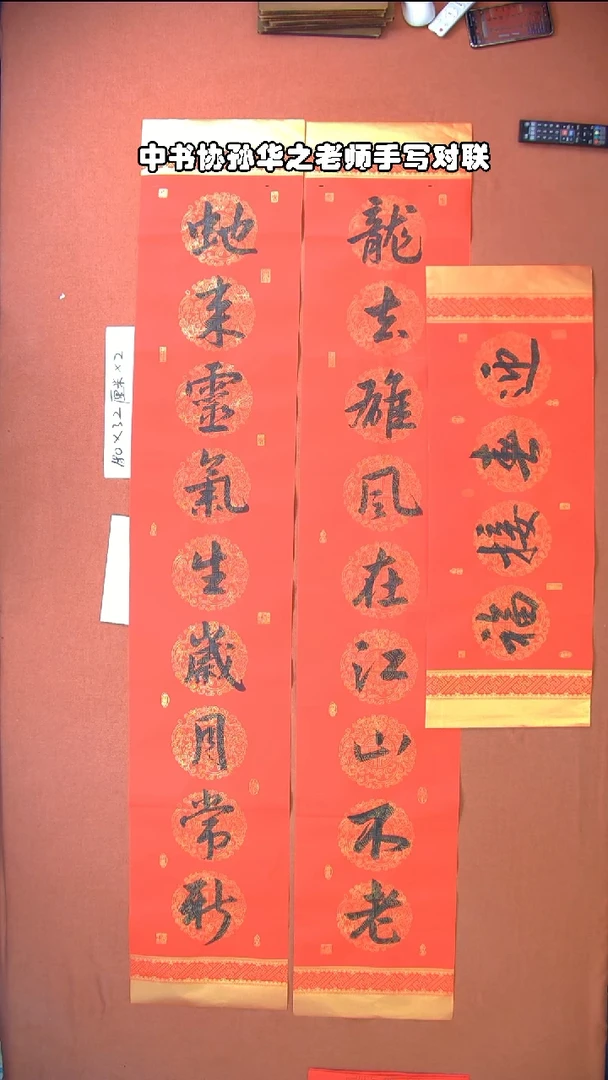 中书协孙华之老师手写对联
龍去雄風在江山不老
蛇来靈氣生歲月常新
迎春接福
180×32厘米×2